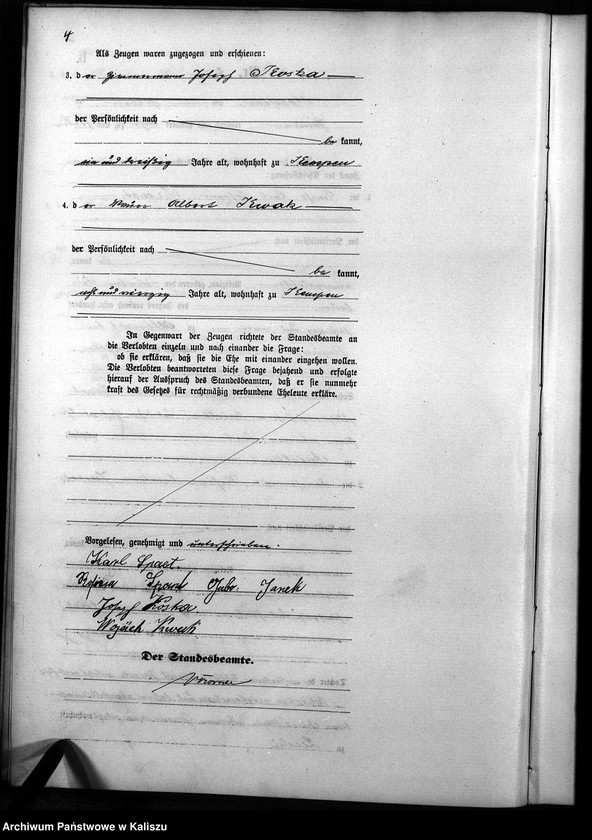 4
Als Zeugen waren zugezogen und erschienen:
3. der Zimmermann Joseph Koska
der Persönlichkeit nach
bekannt,
ein und dreißig Jahre alt, wohnhaft zu Kempen
4. der Albert Kwak
der Persönlichkeit nach
bekannt,
acht und vierzig Jahre alt, wohnhaft zu Kempen
In Gegenwart der Zeugen richtete der Standesbeamte an
die Verlobten einzeln und nach einander die Frage:
ob sie erklären, daß sie die Ehe mit einander eingehen wollen.
Die Verlobten beantworteten diese Frage bejahend und erfolgte
hierauf der Ausspruch des Standesbeamten, daß er sie nunmehr
kraft des Gesetzes für rechtmäßig verbundene Eheleute erkläre.
Vorgelesen, genehmigt und unterschrieben.
Karl
Janek
Josef Koska
Der Standesbeamte.
Archiwum Państwowe w Kaliszu